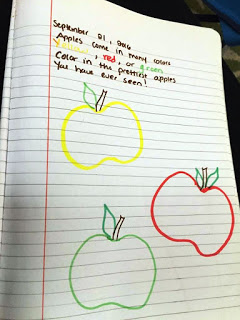 September 21, 2016
Apples come in many colors
Yellow, red, or green
Color in the prettiest apples
You have ever seen!